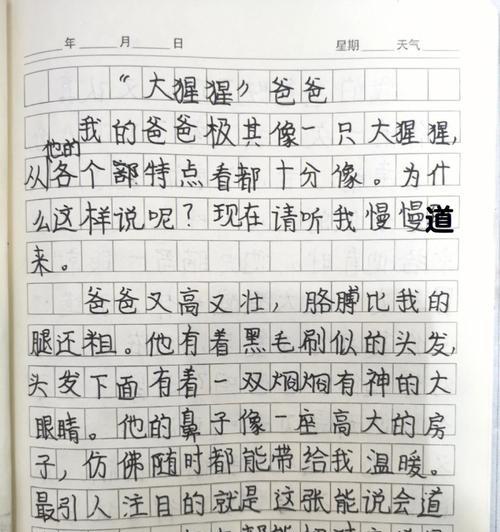 年 月 日 星期 天气
“大猩猩”爸爸
我的爸爸极其像一只大猩猩,
他的
从各个部特点看都十分像。为什
么这样说呢?现在请听我慢慢道
来。
爸爸又高又壮,胳膊比我的
腿还粗。他有着黑毛刷似的头发,
头发下面有着一双炯炯有神的大
眼睛。他的鼻子像一座高大的房
子,仿佛随时都能带给我温暖。
最引人注目的就是这张能说会道